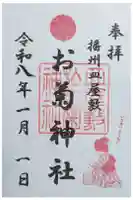 奉拝
播州皿屋敷
お菊神社
令和八年一月一日